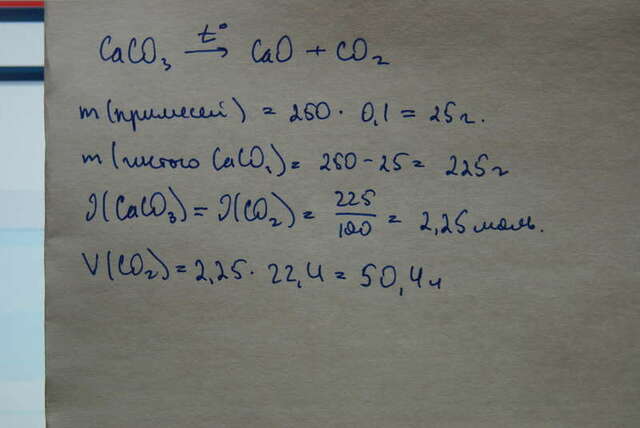 CaCO₃ —t°→ CaO + CO₂
m(примесей) = 250 · 0,1 = 25 г.
m(чистого CaCO₃) = 250 - 25 = 225 г
ν(CaCO₃) = ν(CO₂) = 225/100 = 2,25 моль.
V(CO₂) = 2,25 · 22,4 = 50,4 л